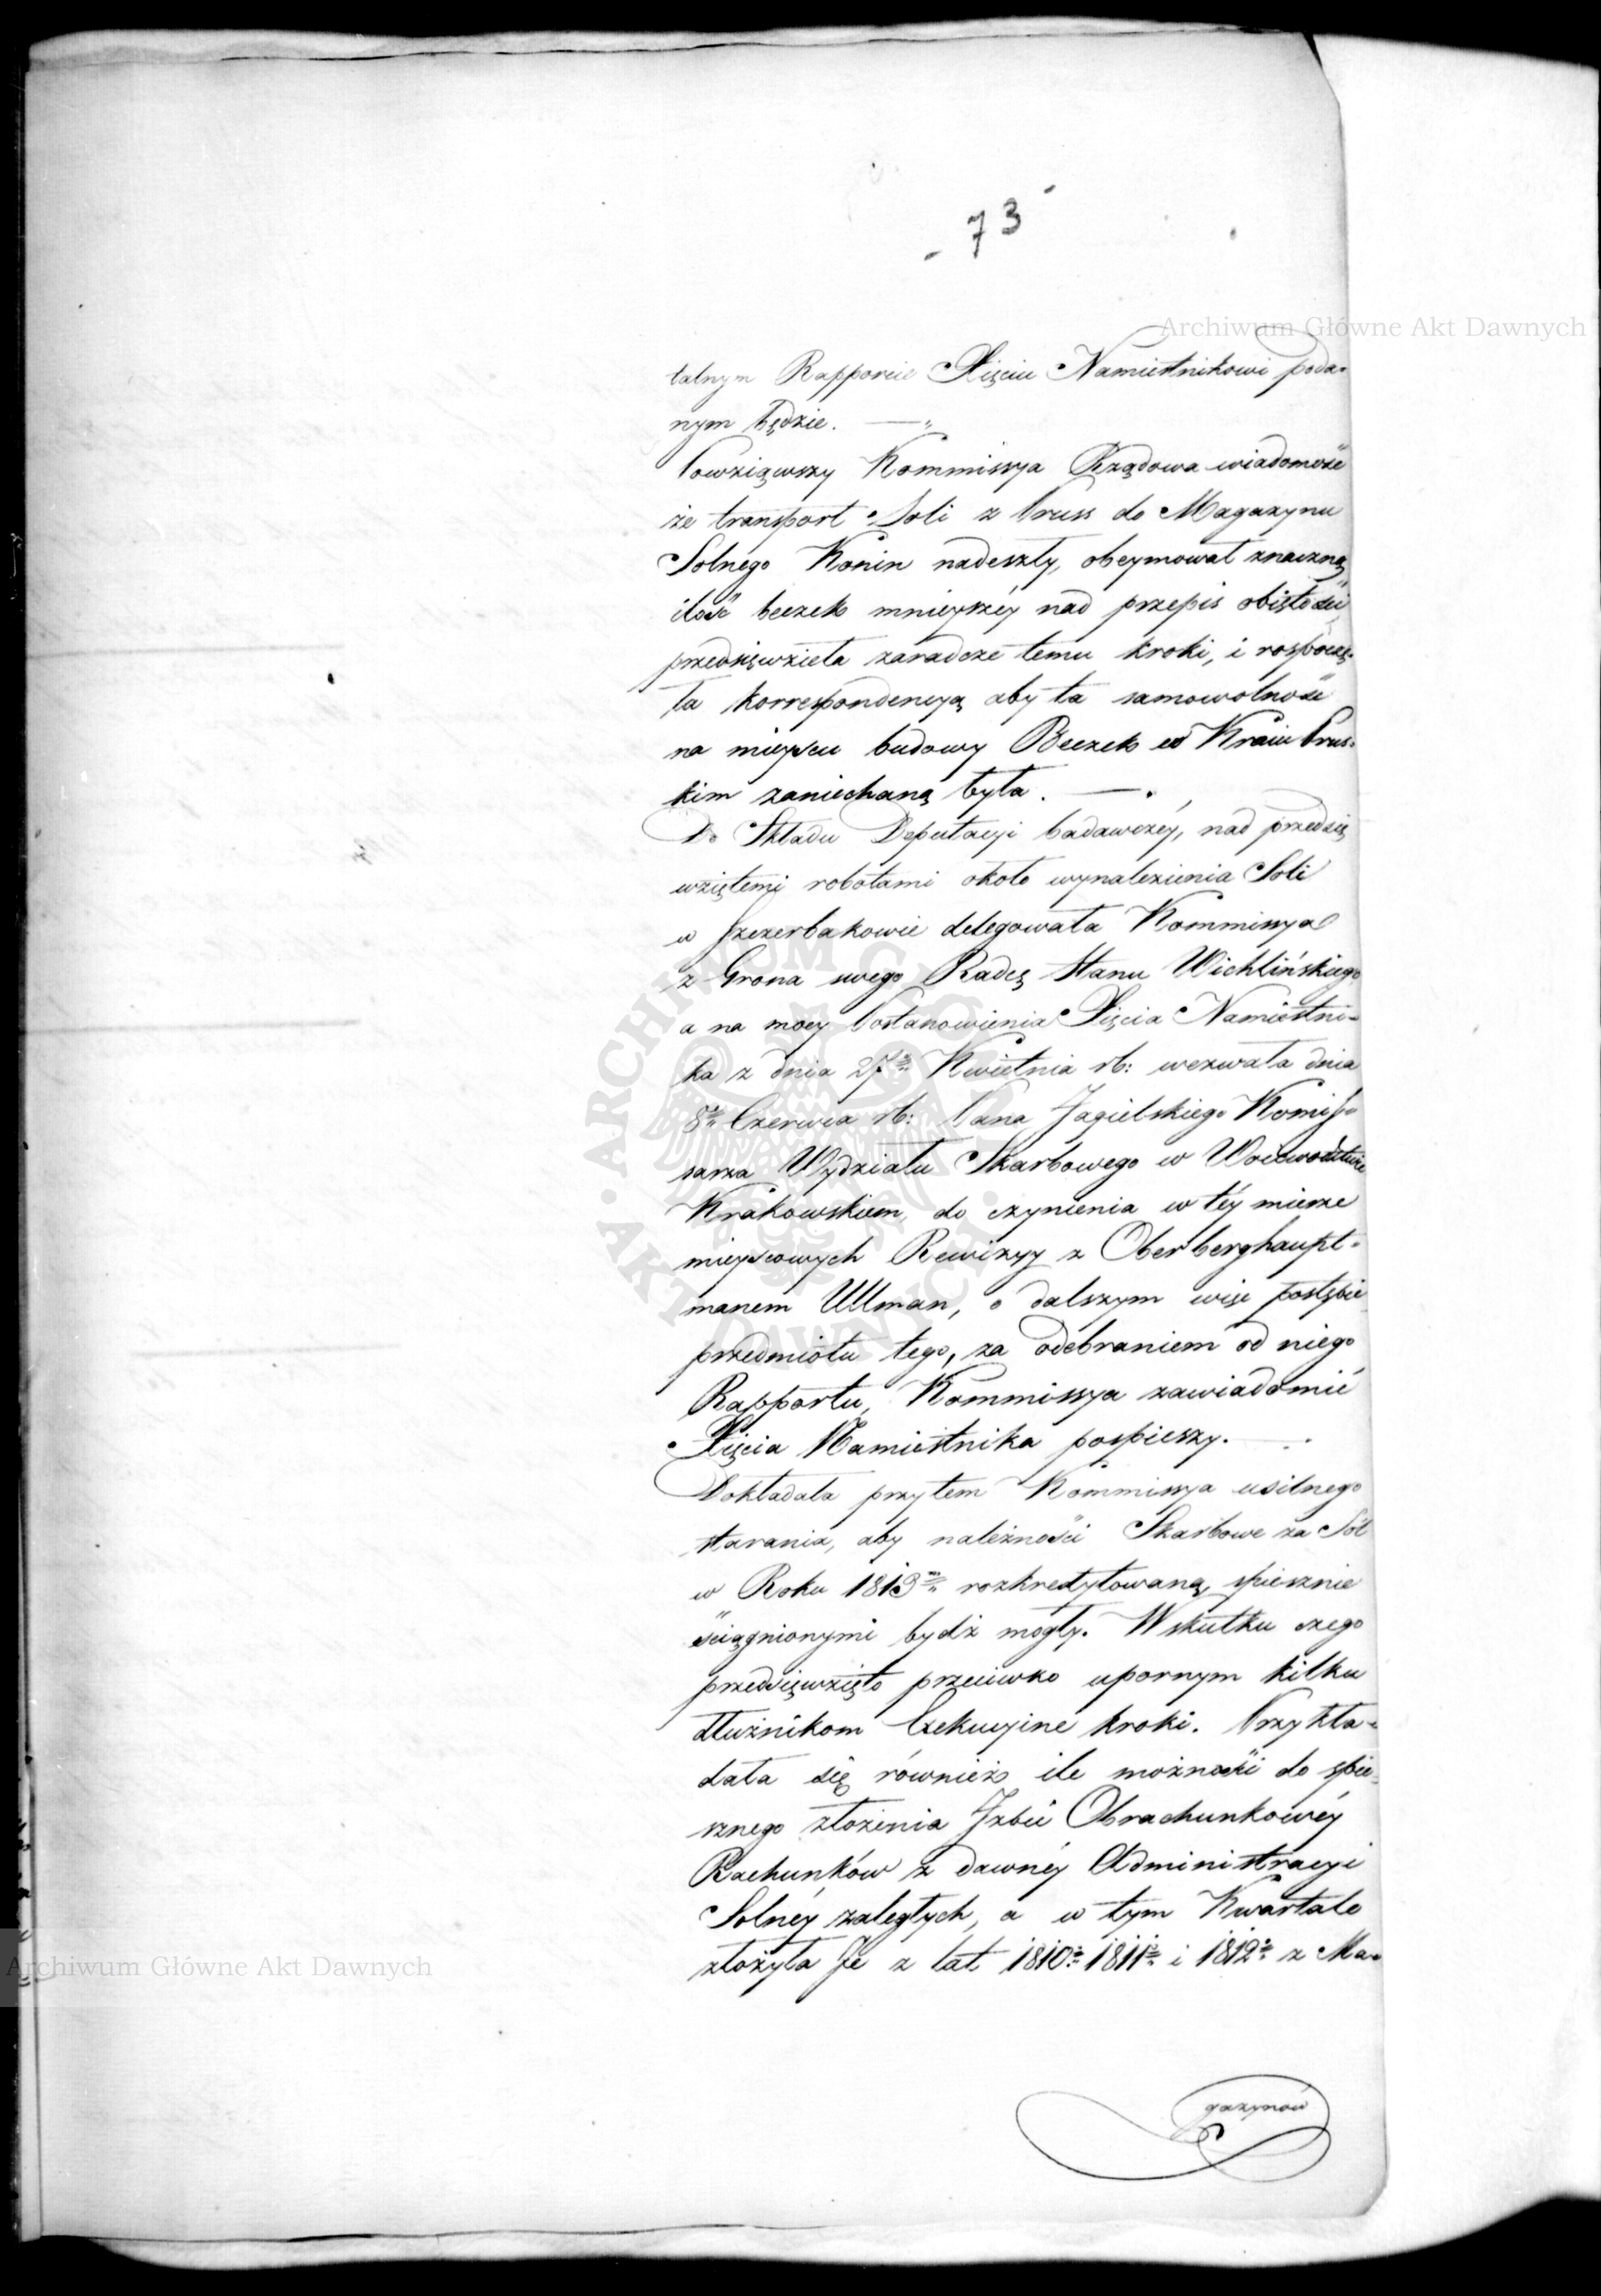 - 73 -
Archiwum Główne Akt Dawnych
talnym Rapporcie Xięciu Namiestnikowi poda-
nym będzie. —
Powziąwszy Kommissya Rządowa wiadomość
że transport Soli z Pruss do Magazynu
Solnego Konin nadeszły, obeymował znaczną
ilość beczek mnieyszéy nad przepis obiętości,
przedsięwzieła zaradcze temu kroki, i rospoczę-
ła korrespondencyą aby ta samowolność
na mieyscu budowy Beczek w Kraiu Prus-
kim zaniechaną była. —
Do Składu Deputacyi badawczéy, nad przedsię
wziętemi robotami około wynalezienia Soli
w Szczerbakowie delegowała Kommissya
z Grona swego Radcę Stanu Wichlińskiego
a na mocy Postanowienia Xięcia Namiestni-
ka z dnia 27º Kwietnia rb: wezwała dnia
8º Czerwca rb: Pana Jagielskiego Komis-
sarza Wydziału Skarbowego w Woiewodztwie
Krakowskiem, do czynienia w téy mierze
mieyscowych Rewizyy z Oberberghaupt-
manem Ullman, o dalszym więc postępie
przedmiotu tego, za odebraniem od niego
Rapportu, Kommissya zawiadomić
Xięcia Namiestnika pospieszy. —
Dokładała przytem Kommissya usilnego
starania, aby należności Skarbowe za Sól
w Roku 1813m rozkredytowaną, spiesznie
ściągnionymi bydź mogły. W skutku czego
przedsięwzięto przeciwko upornym kilku
dłużnikom Exekucyine kroki. Przykła-
dała się równieź ile możności do spie-
sznego złożenia Jzbie Obrachunkowéy
Rachunków z dawnéy Administracyi
Solnéy zaległych, a w tym Kwartale
złożyła Je z lat 1810º 1811º i 1812º z Ma-
gazynów
Archiwum Główne Akt Dawnych
ARCHIWUM GŁÓWNE AKT DAWNYCH